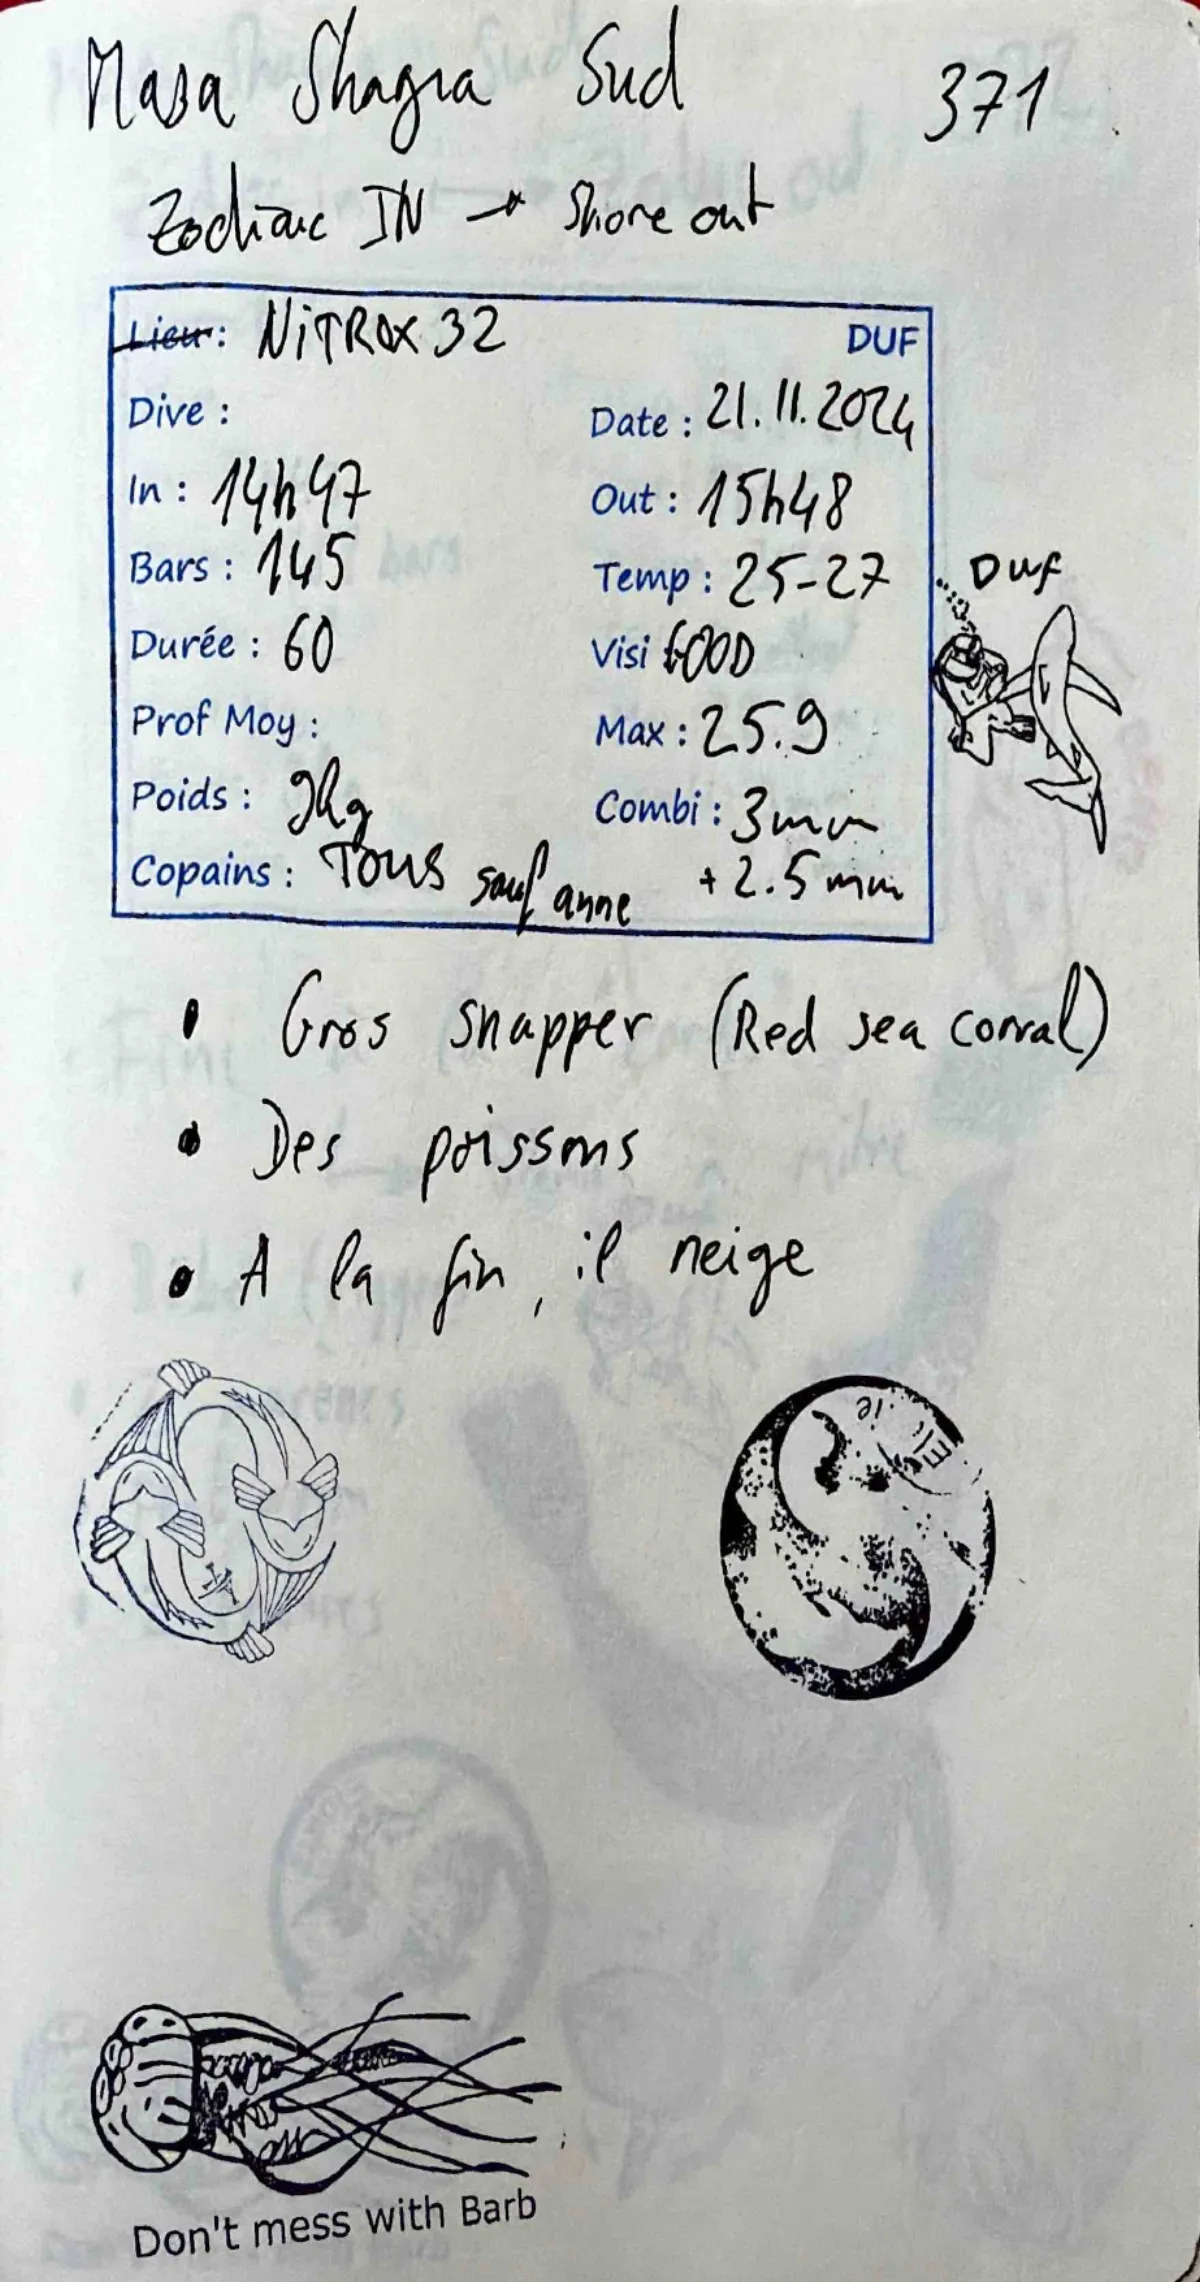 Masa Shagra Sud 371
Zodiac IN → Shore out
Lieu : NiTROX 32 DUF
Dive : Date : 21.11.2024
In : 14h47 Out : 15h48
Bars : 145 Temp : 25-27
Duf
Durée : 60 Visi GOOD
Prof Moy : Max : 25.9
Poids : 9kg Combi : 3mm
Copains : Tous sauf anne + 2.5 mm
• Gros snapper (Red sea corral)
• Des poissons
• A la fin, il neige
Don't mess with Barb